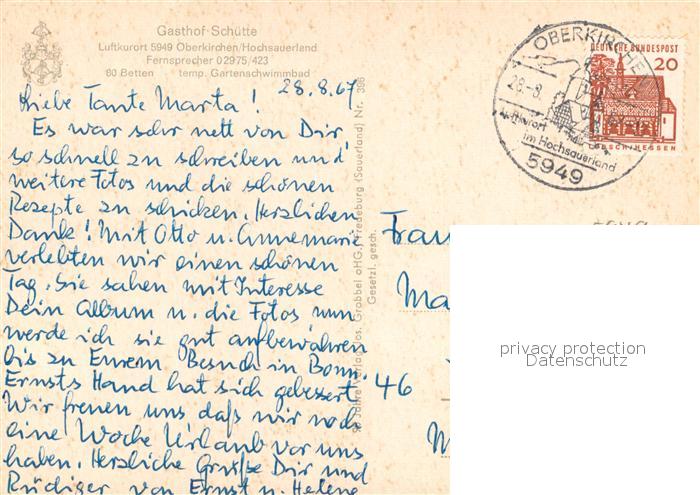 Gasthof-Schütte
Luftkurort 5949 Oberkirchen/Hochsauerland
Fernsprecher 02975/423
60 Betten temp. Gartenschwimmbad
28.8.67
Liebe Tante Marta!
Es war sehr nett von Dir,
so schnell zu schreiben und
weitere Fotos und die schönen
Rezepte zu schicken. Herzlichen
Dank! Mit Otto u. Annemarie
verlebten wir einen schönen
Tag. Sie sahen mit Interesse
Dein Album u. die Fotos nun
werde ich sie gut aufbewahren
bis zu Eurem Besuch in Bonn.
Ernsts Hand hat sich gebessert
Wir freuen uns daß wir noch
eine Woche Urlaub vor uns
haben. Herzliche Grüße Dir und
Rüdiger von Ernst u. Helene
Verlag Jos. Grobbel oHG., Fredeburg (Sauerland) Nr. 386
Gesetzl. gesch.
OBERKIRCHEN
28.-8.
Luftkurort
im Hochsauerland
5949
DEUTSCHE BUNDESPOST
20
LORSCH/HESSEN
46
privacy protection
Datenschutz